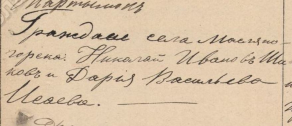 Мартынюк
Граждане села Масляно-
горска: Николай Ивановъ Ши-
ковъ и Дарія Васильева
Исаева.